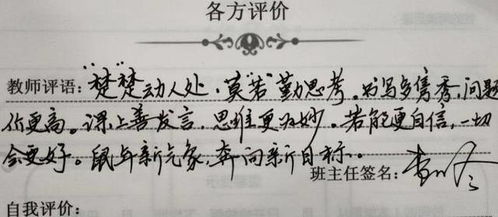 各方评价
教师评语:“楚楚”动人处,莫“若”勤思考。书写多隽秀,问题
价更高。课上善发言,思维更为妙。若能更自信,一切
会更好。鼠年新气象,奔向新目标。
班主任签名:
自我评价: